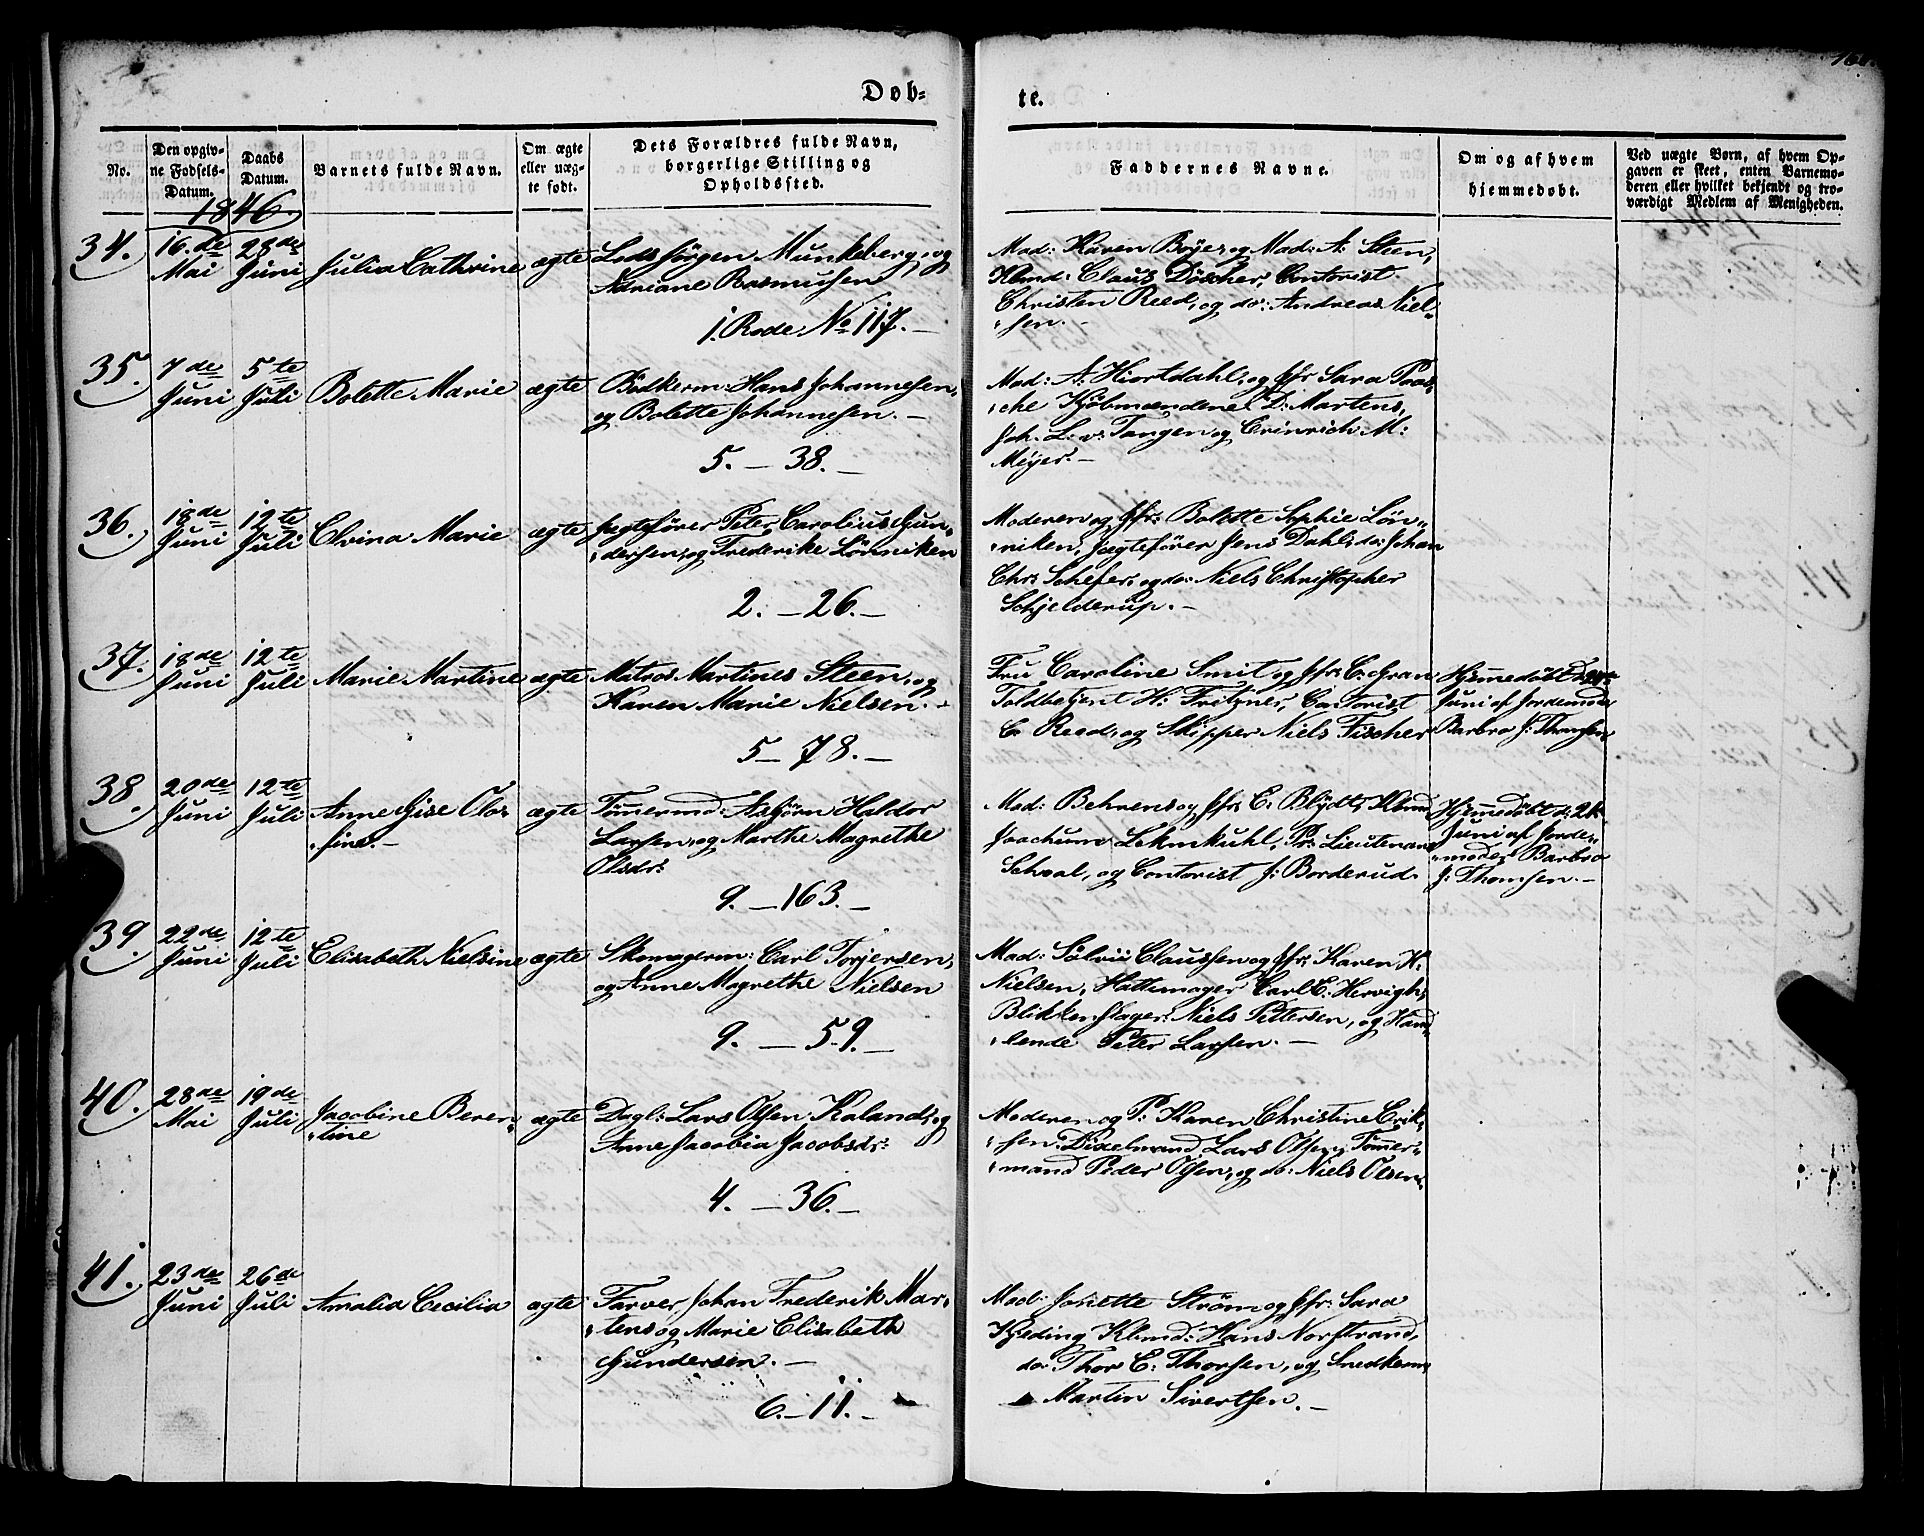 Døb-
te.
No.
Den opgiv-
ne Fødsels-
Datum.
Daabs
Datum.
Barnets fulde Navn.
Om ægte
eller uæg-
te født.
Dets Forældres fulde Navn,
borgerlige Stilling og
Opholdssted.
Faddernes Navne.
Om og af hvem
hjemmedøbt.
Ved uægte Børn, af hvem Op-
gaven er skeet, enten Barnemo-
deren eller hvilket bekjendt og tro-
værdigt Medlem af Menigheden.
1846.
34. 16.de Mai 28de Juni Julia Cathrine ægte Lods Jørgen Munkeberg, og
Adriane Rasmussen
1. Rode No 117.-
Mad: Karen Böyer og Mad: A: Steen,
Kbmd: Claus Döscher, Contorist
Christen Reed, og do: Andreas Niel-
sen.-
35. 7de Juni 5te Juli Bolette Marie ægte Bödkerm: Hans Johannesen,
og Bolette Johannesen.-
5. - 38.-
Mad: A: Hiortdahl, og Jfr Sara Paas-
che Kjöbmændene D: Martens,
Joh. L: v: Tangen og Erinrich M:
Meyer.-
36. 18de Juni 12te Juli Elvina Marie ægte Jægtefører Peter Carolius Gun-
dersen, og Frederike Lönniken
2. - 26.-
Moderen og Jfr: Bolette Sophie Lön-
niken, Jægtefører Jens Dahl, do: Johan
Chr: Schefer, og do: Niels Christopher
Schjelderup.-
37. 18de Juni 12te Juli Marie Martine ægte Matros Martines Steen, og
Karen Marie Nielsen.-
5 - 78.-
Fru Caroline Smit og Jfr: C: Gran
Toldbetjent H: Fritzner, Contorist
C: Reed, og Skipper Niels Fischer
Hjemmedöbt d:
Juni af Jordemoder
Barbro J: Thomsen
38. 20de Juni 12te Juli Anne Gise Olo-
sine.-
ægte Tömmermd: Asbjörn Haldor
Larsen, og Marthe Magrethe
Olsdr:
9. - 163.-
Mad: Behrens og Jfr: C: Blÿdt, Kbmd
Joachum Lekmkuhl, Pr: Lieutenant
Schval, og Contorist J: Borderud.
Hjemmedöbt d:
Juni af Jorde-
moder Barbro
J: Thomsen.-
39 22de Juni 12te Juli Elisabeth Nielsine ægte Skomagerm: Carl Torjersen,
og Anne Magrethe Nielsen
9. - 59.-
Mad: Sölvie Claussen og Jfr: Karen H:
Nielsen, Hattemager Carl C: Hervigh,
Blikkenslager: Niels Pettersen, og Hand-
lende Peter Larsen.-
40. 28de Mai 19de Juli Jacobine Beren-
tine
ægte Dagl: Lars Olsen Kaland, og
Anne Jacobia Jacobsdr:
4. - 36.-
Moderen og P: Karen Christine Erik-
sen: Lars Olsen, Tömmer-
mand Peder Olsen, og do: Niels Olsen.
41. 23de Juni 26de Juli Amalia Cecilia ægte Farver Johan Frederik Mar-
tens og Marie Elisabeth
Gundersen.-
6. - 11.-
Mad: Jonette Ström og Jfr: Sara
Kjeding Kbmd: Hans Norstrand,
do: Thor C: Thorsen, og Snedkerm:
Martin Sivertsen.-